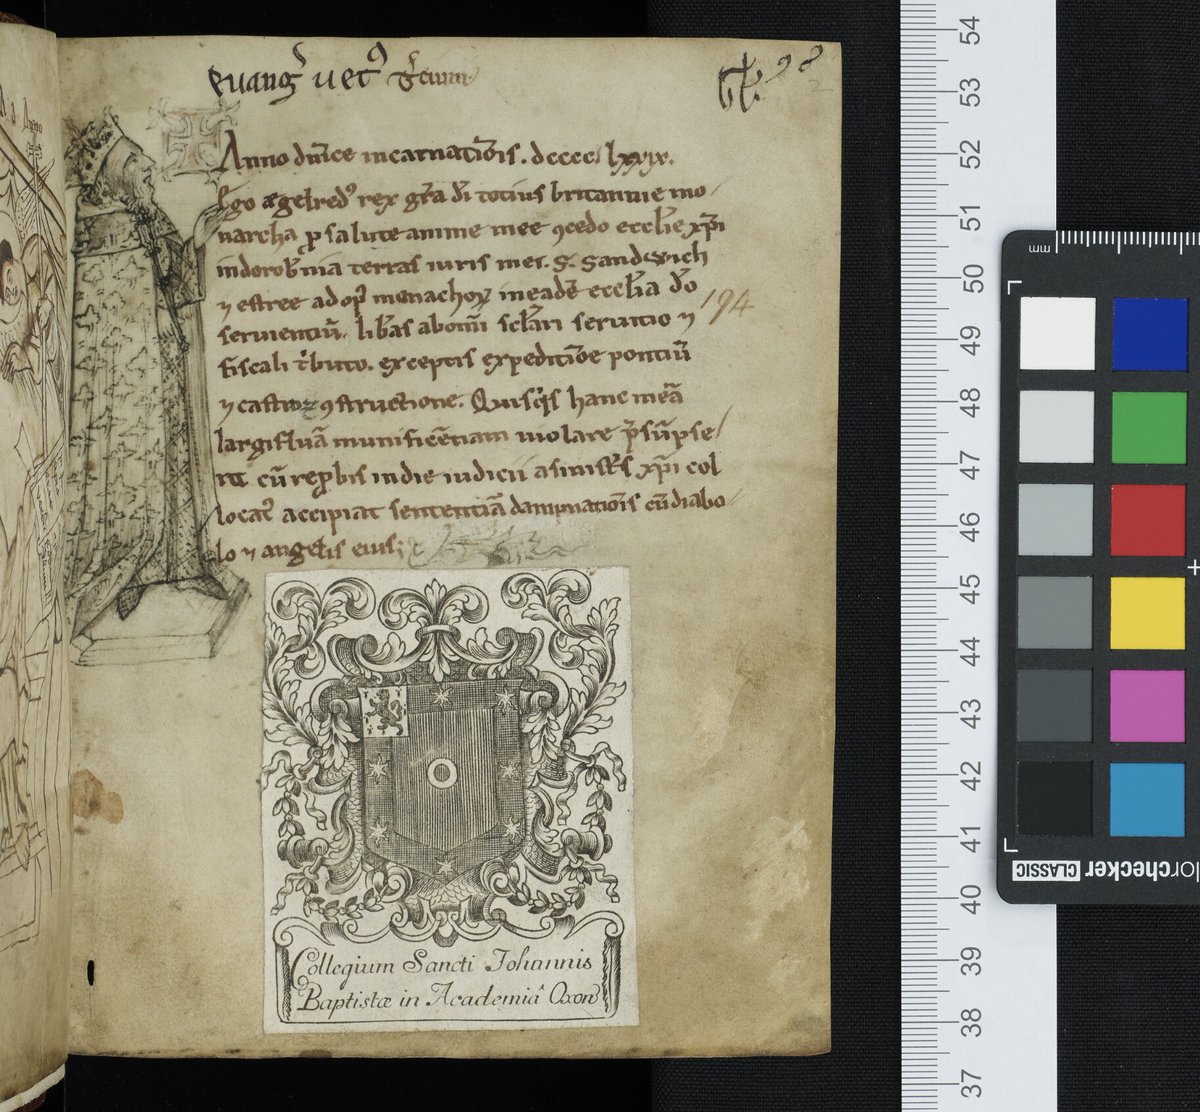 euangͥ uetꝰ
98
2
Anno dn̄ice incarnatiōis. dcccc lxxix.
Ego ægelredꝰ rex gr̄a dī totius britannie mo
narcha ꝓ salute anime mee ꝯcedo eccl̄ie xp̄i
in dorob̄nia terras iuris mei. S. Sandƿich
⁊ estree ad opꝰ monachoꝝ in eadē eccl̄ia dō
seruientiū. lib̄as ab om̄i sc̄lari seruitio ⁊
194
fiscali tͥbuto. exceptis expeditiōe pontiū
⁊ castroꝝ ꝯstructione. Quisqͥs hanc meā
largifluā munificētiam uiolare p̄sūpse
rit cū reꝓbis in die iudicii a sinistͥs xp̄i col
locatꝰ accipiat sententiā dampnatiōis cū diabo
lo ⁊ angelis eius;
Collegium Sancti Johannis
Baptistæ in Academiâ Oxon
mm
54
53
52
51
50
49
48
47
46
45
44
43
42
41
40
39
38
37
lorchecker CLASSIC